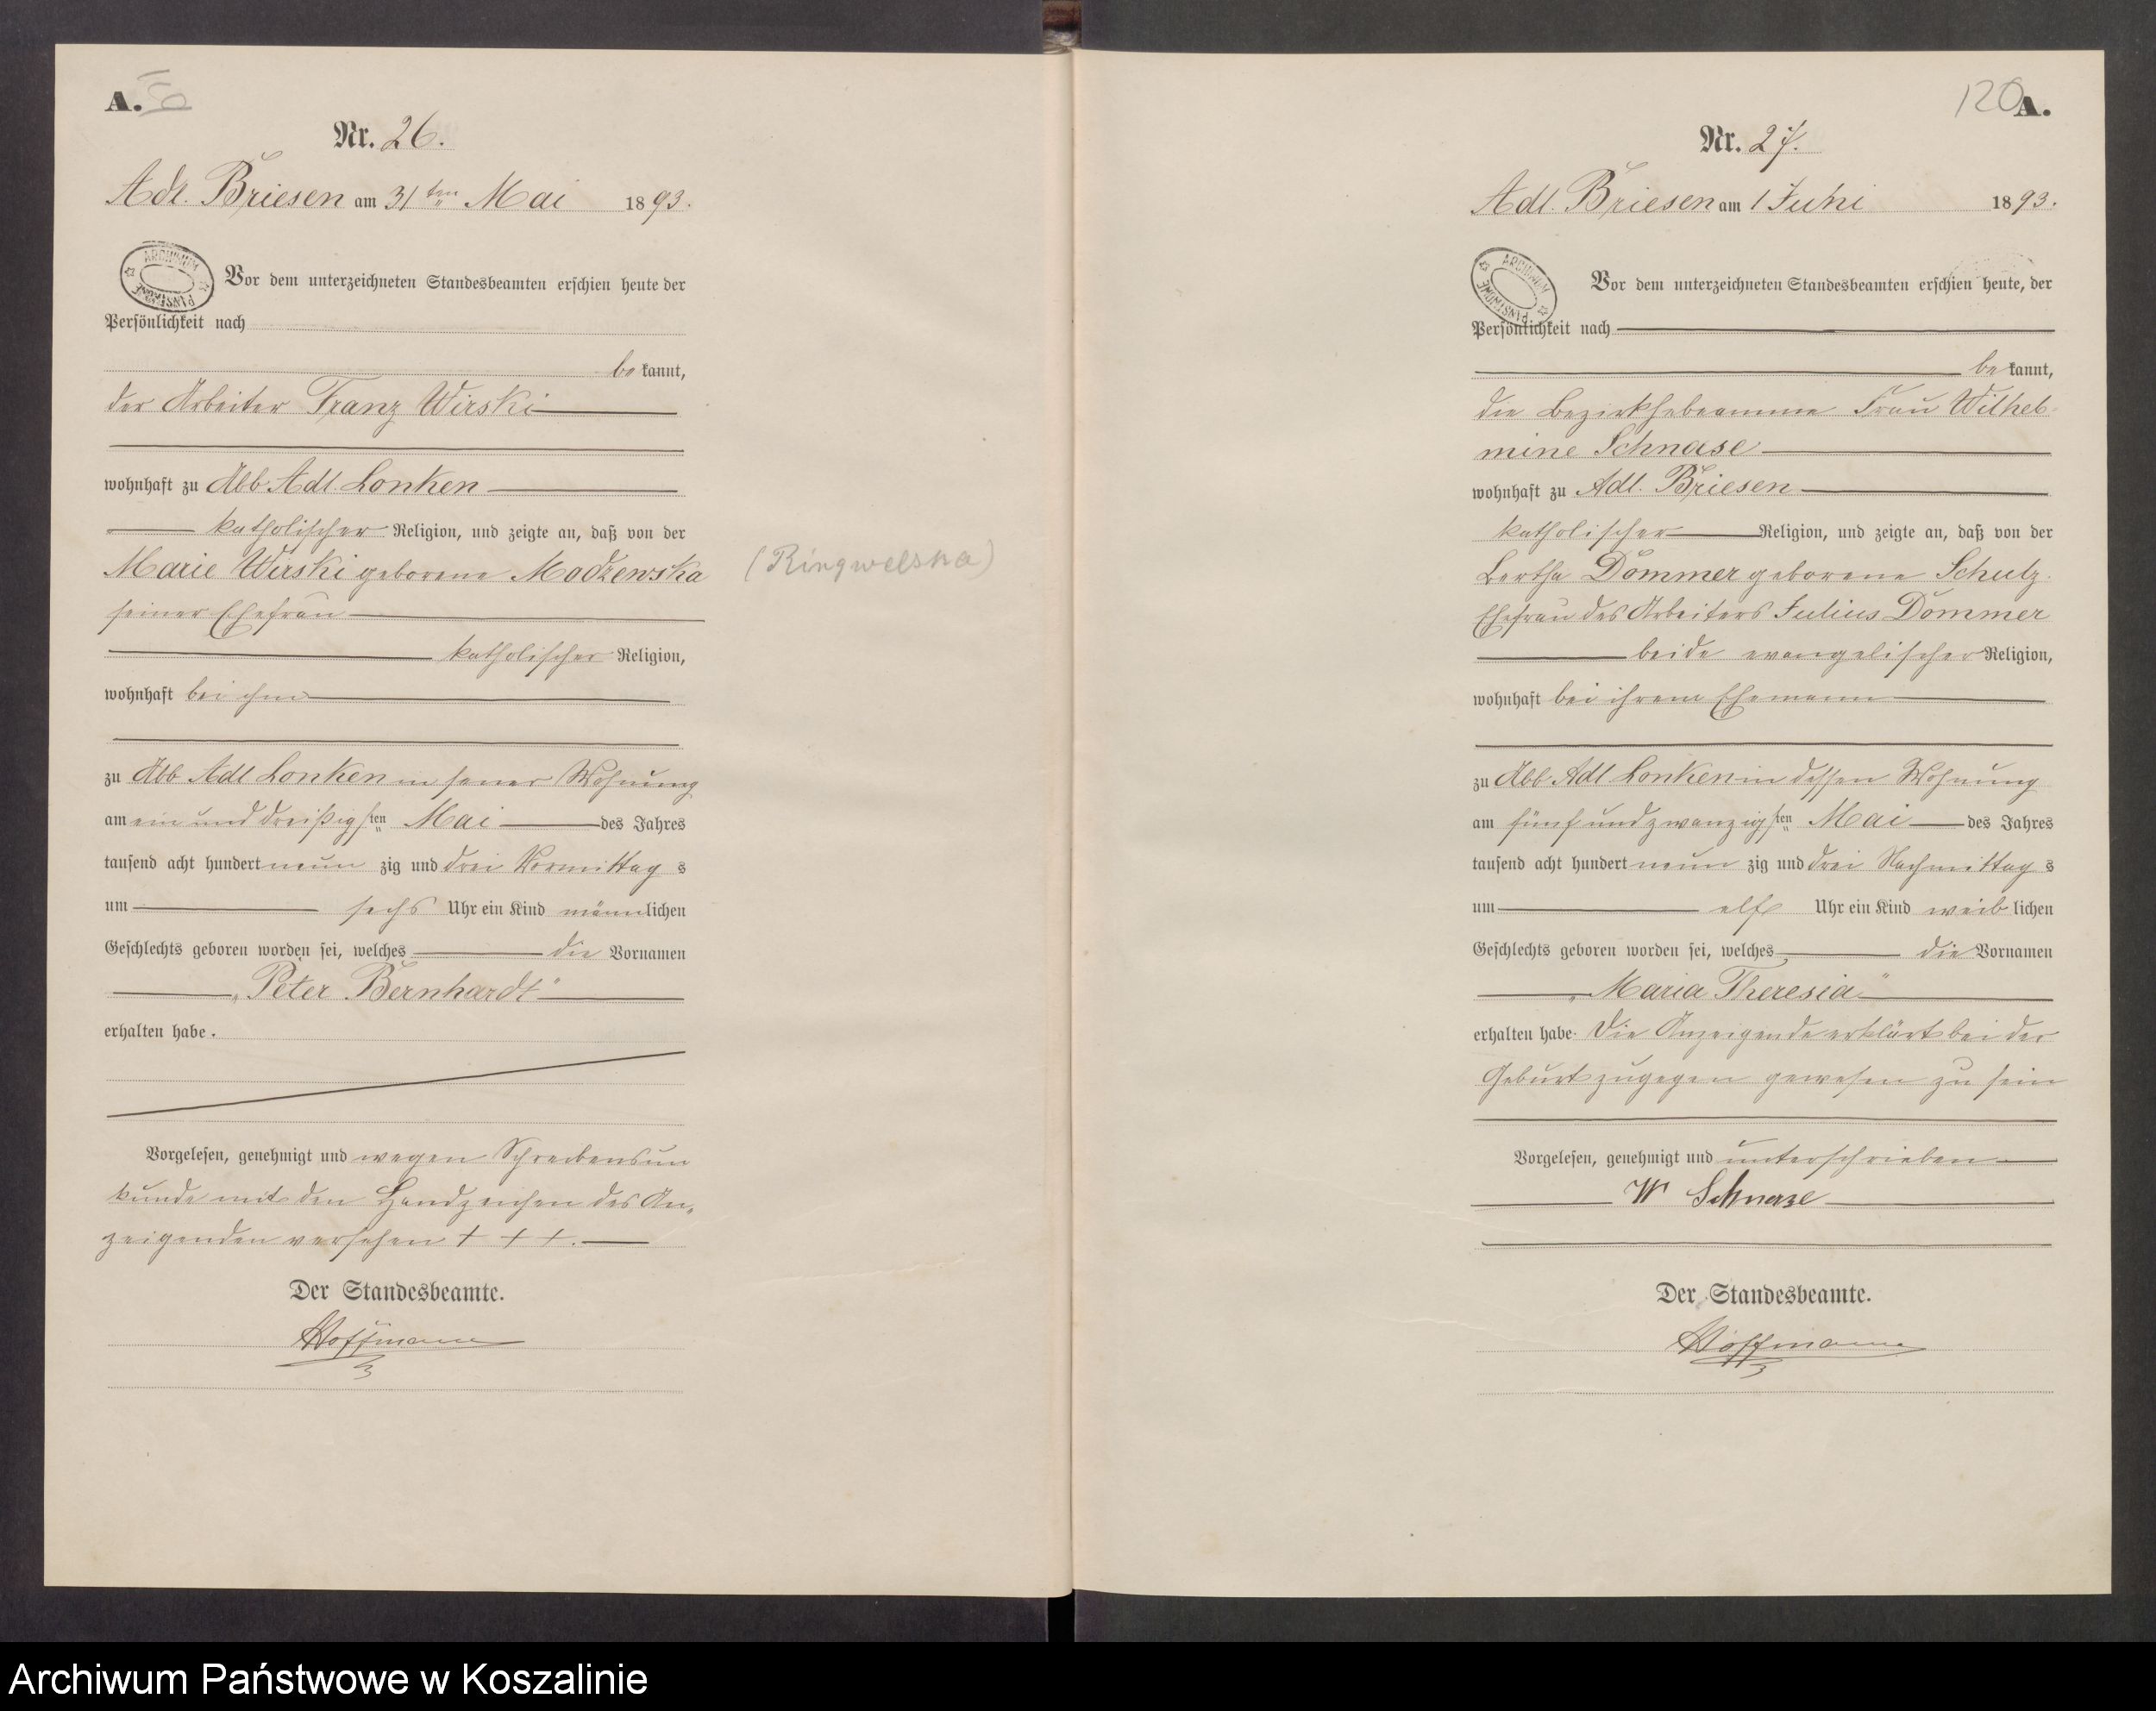 A.
Nr. 26.
Adl. Briesen am 31ten Mai 1893.
ARCHIWUM PAŃSTWOWE
Vor dem unterzeichneten Standesbeamten erschien heute der
Persönlichkeit nach
be kannt,
der Arbeiter Franz Wirski
wohnhaft zu Abb Adl. Lonken
katholischer Religion, und zeigte an, daß von der
Marie Wirski geborene Modzewska (Ringwelska)
seiner Ehefrau
katholischer Religion,
wohnhaft bei ihm
zu Abb Adl Lonken in seiner Wohnung
am ein und dreißigsten Mai des Jahres
tausend acht hundert neun zig und drei Vormittag s
um sechs Uhr ein Kind männlichen
Geschlechts geboren worden sei, welches die Vornamen
„Peter Bernhardt“
erhalten habe.
Vorgelesen, genehmigt und wegen Schreibensun
kunde mit den Handzeichen des An„
zeigenden versehen + + +.
Der Standesbeamte.
Hoffmann
120 A.
Nr. 27.
Adl. Briesen am 1 Juni 1893.
ARCHIWUM PAŃSTWOWE
Vor dem unterzeichneten Standesbeamten erschien heute, der
Persönlichkeit nach
be kannt,
die Bezirkhebeamme Frau Wilhel-
mine Schnase
wohnhaft zu Adl. Briesen
katholischer Religion, und zeigte an, daß von der
Bertha Dommer geborene Schulz
Ehefrau des Arbeiters Julius Dommer
beide evangelischer Religion,
wohnhaft bei ihrem Ehemann
zu Abb Adl Lonken in dessen Wohnung
am fünf und zwanzigsten Mai des Jahres
tausend acht hundert neun zig und drei Nachmittag s
um elf Uhr ein Kind weib lichen
Geschlechts geboren worden sei, welches die Vornamen
„Maria Theresia“
erhalten habe. Die Anzeigende erklärt bei der
Geburt zugegen gewesen zu sein
Vorgelesen, genehmigt und unterschrieben
W Schnase
Der Standesbeamte.
Hoffmann
Archiwum Państwowe w Koszalinie